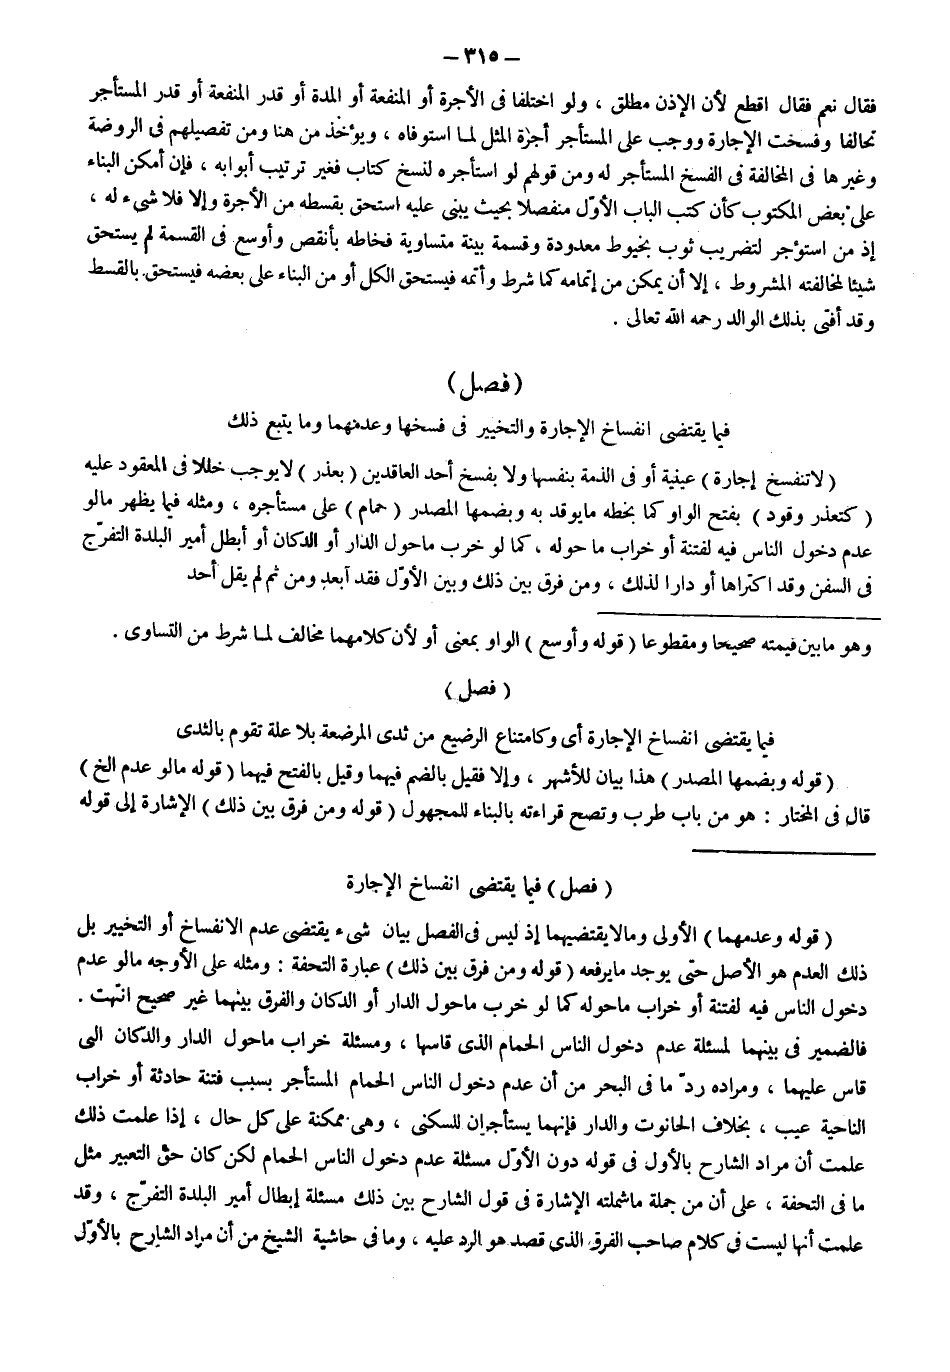 – ٣١٥ –
فقال نعم فقال اقطع لأن الإذن مطلق ، ولو اختلفا فى الأجرة أو المنفعة أو المدة أو قدر المنفعة أو قدر المستأجر
تحالفا وفسخت الإجارة ووجب على المستأجر أجرة المثل لما استوفاه ، ويؤخذ من هنا ومن تفصيلهم فى الروضة
وغيرها فى المخالفة فى الفسخ المستأجر له ومن قولهم لو استأجره لنسخ كتاب فغير ترتيب أبوابه ، فإن أمكن البناء
على بعض المكتوب كأن كتب الباب الأوّل منفصلا بحيث يبنى عليه استحق بقسطه من الأجرة وإلا فلا شىء له ،
إذ من استؤجر لتضريب ثوب بخيوط معدودة وقسمة بينة متساوية فخاطه بأنقص وأوسع فى القسمة لم يستحق
شيئا لمخالفته المشروط ، إلا أن يمكن من إتمامه كما شرط وأتمه فيستحق الكل أو من البناء على بعضه فيستحق بالقسط
وقد أفتى بذلك الوالد رحمه الله تعالى .
( فصل )
فيما يقتضى انفساخ الإجارة والتخيير فى فسخها وعدمهما وما يتبع ذلك
( لاتنفسخ إجارة ) عينية أو فى الذمة بنفسها ولا بفسخ أحد العاقدين ( بعذر ) لايوجب خللا فى المعقود عليه
( كتعذر وقود ) بفتح الواو كما بخطه مايوقد به وبضمها المصدر ( حمام ) على مستأجره ، ومثله فيما يظهر مالو
عدم دخول الناس فيه لفتنة أو خراب ما حوله ، كما لو خرب ماحول الدار أو الدكان أو أبطل أمير البلدة التفرّج
فى السفن وقد اكتراها أو دارا لذلك ، ومن فرق بين ذلك وبين الأوّل فقد أبعد ومن ثم لم يقل أحد
وهو مابين قيمته صحيحا ومقطوعا ( قوله وأوسع ) الواو بمعنى أو لأن كلامهما مخالف لما شرط من التساوى .
( فصل )
فيما يقتضى انفساخ الإجارة أى وكامتناع الرضيع من ثدى المرضعة بلا علة تقوم بالثدى
( قوله وبضمها المصدر ) هذا بيان للأشهر ، وإلا فقيل بالضم فيهما وقيل بالفتح فيهما ( قوله مالو عدم الخ )
قال فى المختار : هو من باب طرب وتصح قراءته بالبناء للمجهول ( قوله ومن فرق بين ذلك ) الإشارة إلى قوله
( فصل ) فيما يقتضى انفساخ الإجارة
( قوله وعدمهما ) الأولى ومالايقتضيهما إذ ليس فى الفصل بيان شىء يقتضى عدم الانفساخ أو التخيير بل
ذلك العدم هو الأصل حتى يوجد مايرفعه ( قوله ومن فرق بين ذلك ) عبارة التحفة : ومثله على الأوجه مالو عدم
دخول الناس فيه لفتنة أو خراب ماحوله كما لو خرب ماحول الدار أو الدكان والفرق بينهما غير صحيح انتهت .
فالضمير فى بينهما لمسئلة عدم دخول الناس الحمام الذى قاسها ، ومسئلة خراب ماحول الدار والدكان التى
قاس عليهما ، ومراده ردّ ما فى البحر من أن عدم دخول الناس الحمام المستأجر بسبب فتنة حادثة أو خراب
الناحية عيب ، بخلاف الحانوت والدار فإنهما يستأجران للسكنى ، وهى ممكنة على كل حال ، إذا علمت ذلك
علمت أن مراد الشارح بالأول فى قوله دون الأوّل مسئلة عدم دخول الناس الحمام لكن كان حق التعبير مثل
ما فى التحفة ، على أن من جملة ماشملته الإشارة فى قول الشارح بين ذلك مسئلة إبطال أمير البلدة التفرّج ، وقد
علمت أنها ليست فى كلام صاحب الفرق الذى قصد هو الرد عليه ، وما فى حاشية الشيخ من أن مراد الشارح بالأوّل